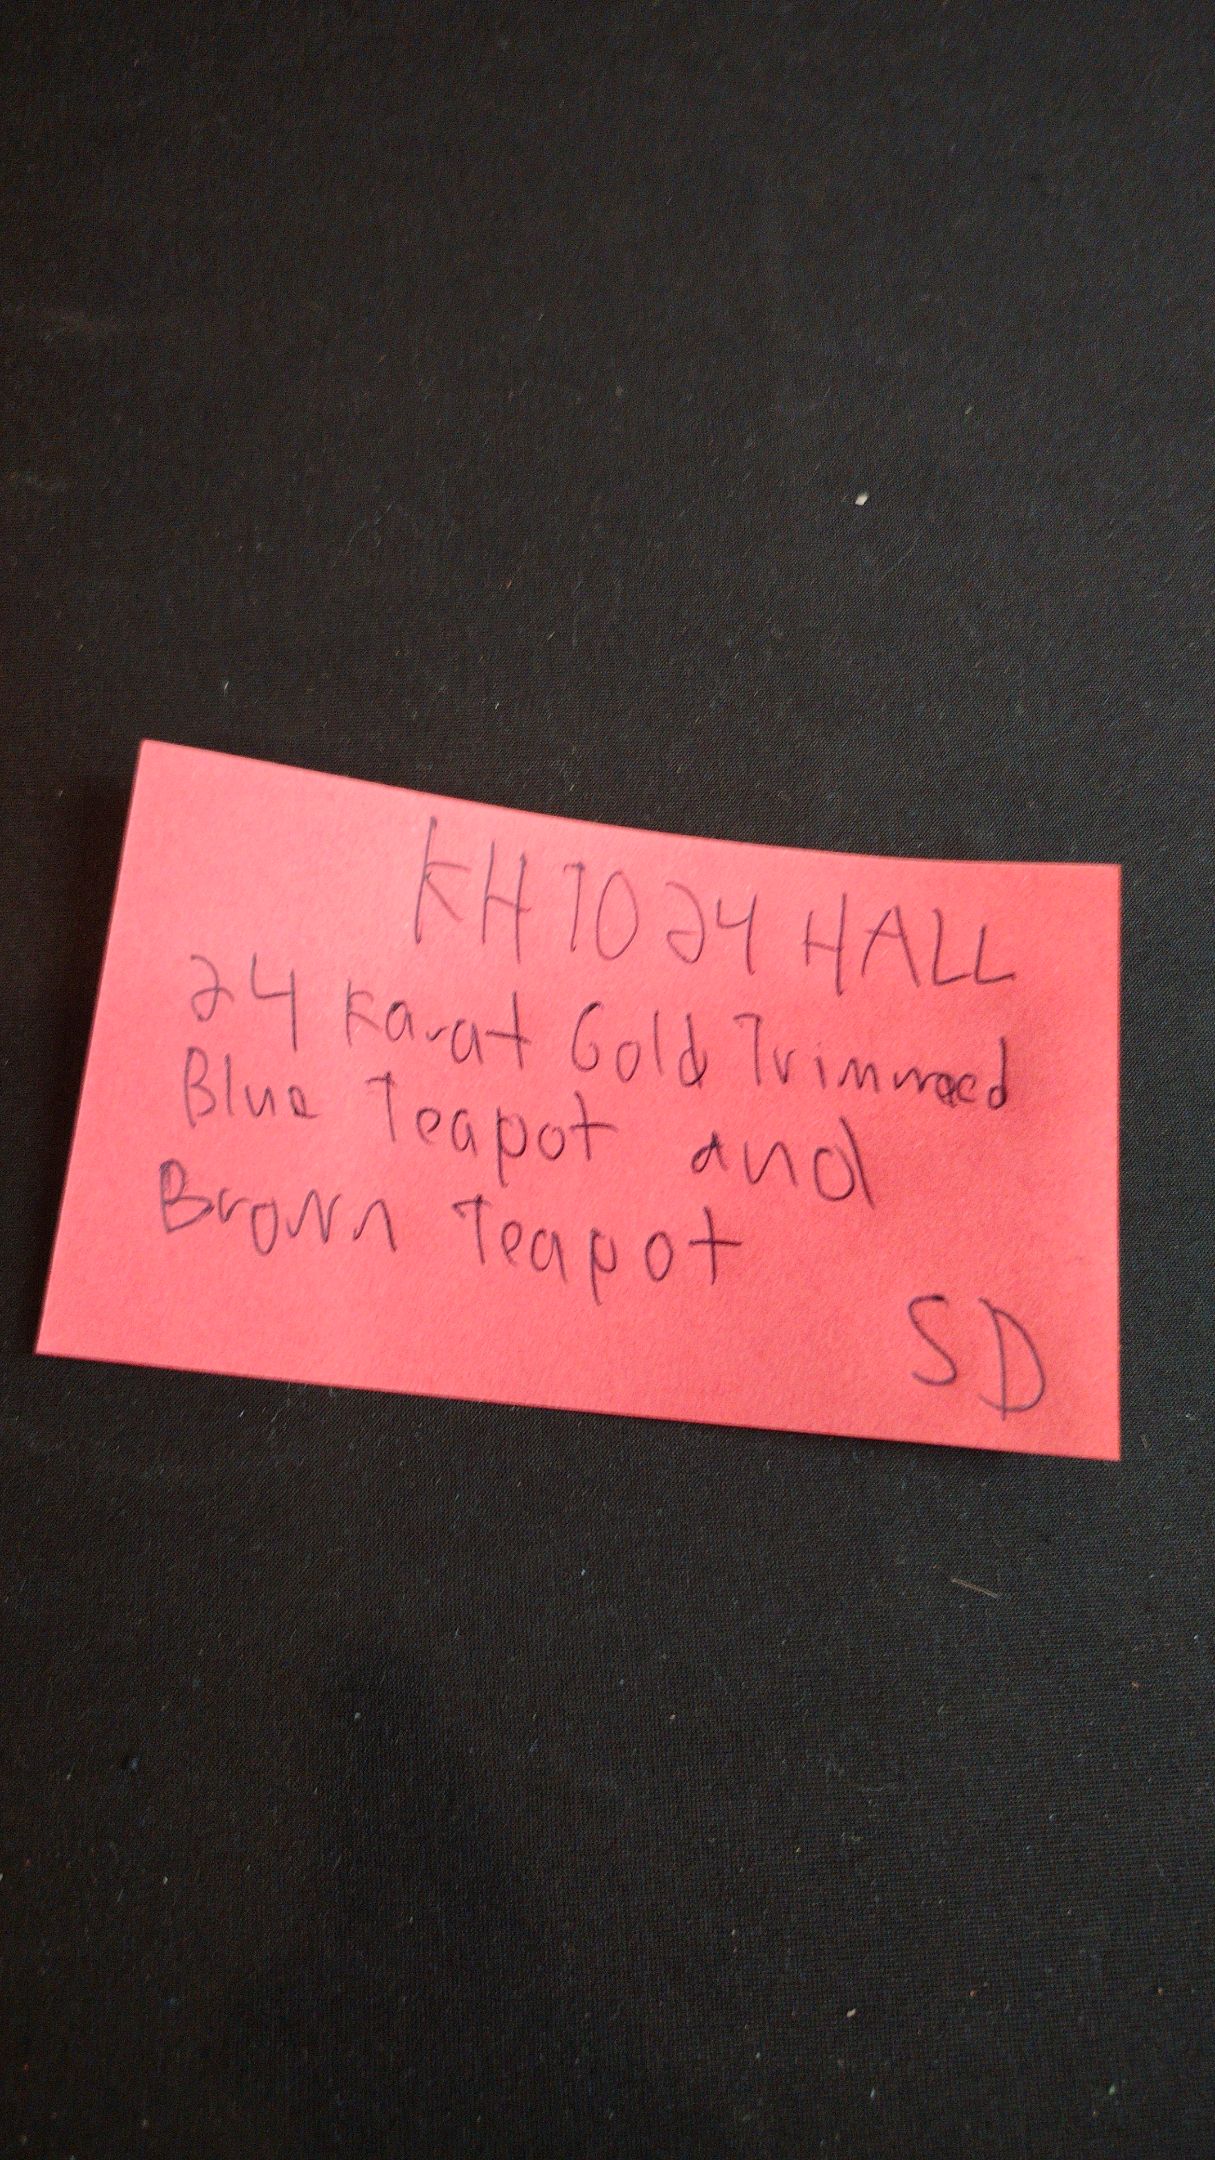 KH TO 24 HALL
24 Karat Gold Trimmed
Blue Teapot and
Brown Teapot
SD